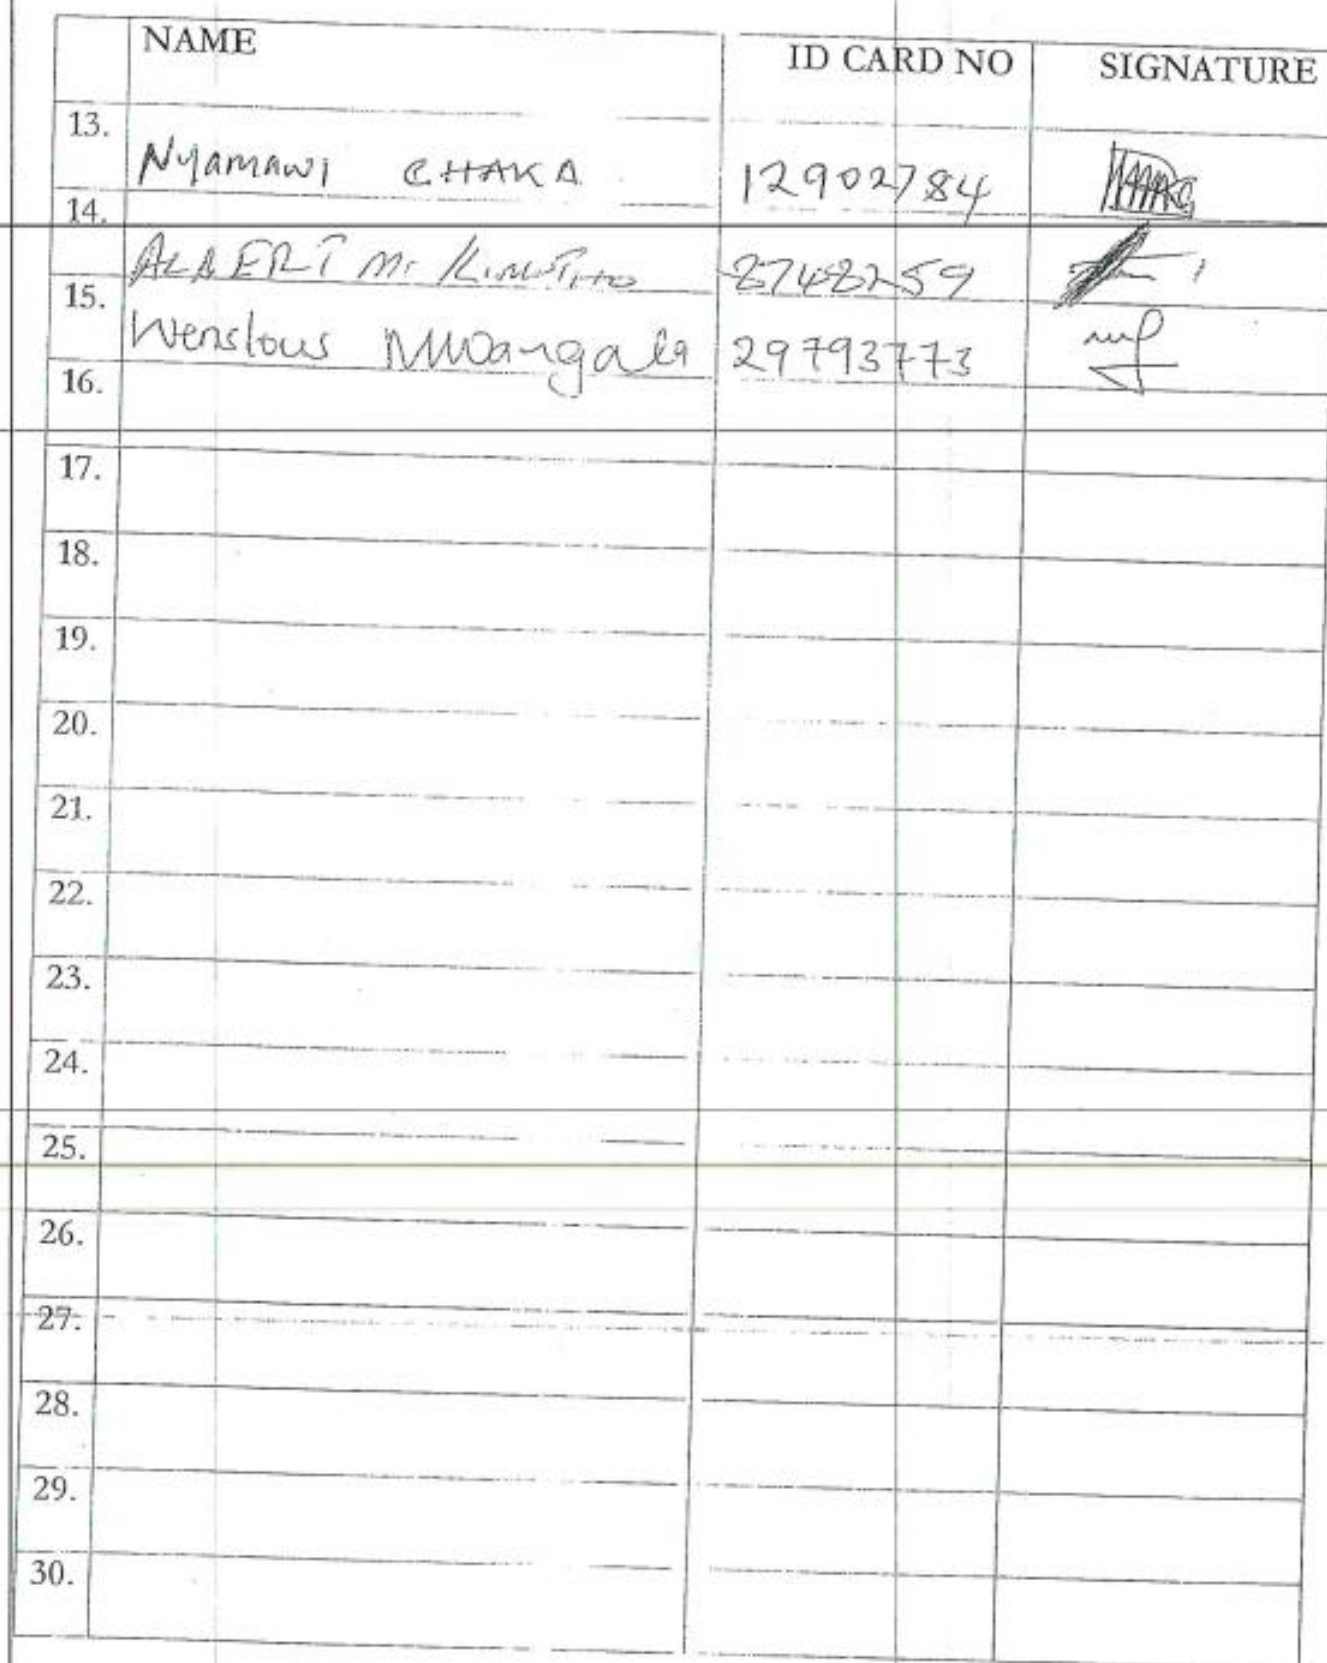 NAME ID CARD NO SIGNATURE
13. Nyamawi CHAKA 12902784
14. ALBERT M. 27482259
15. Wenslous Mwangala 29793773
16.
17.
18.
19.
20.
21.
22.
23.
24.
25.
26.
27.
28.
29.
30.